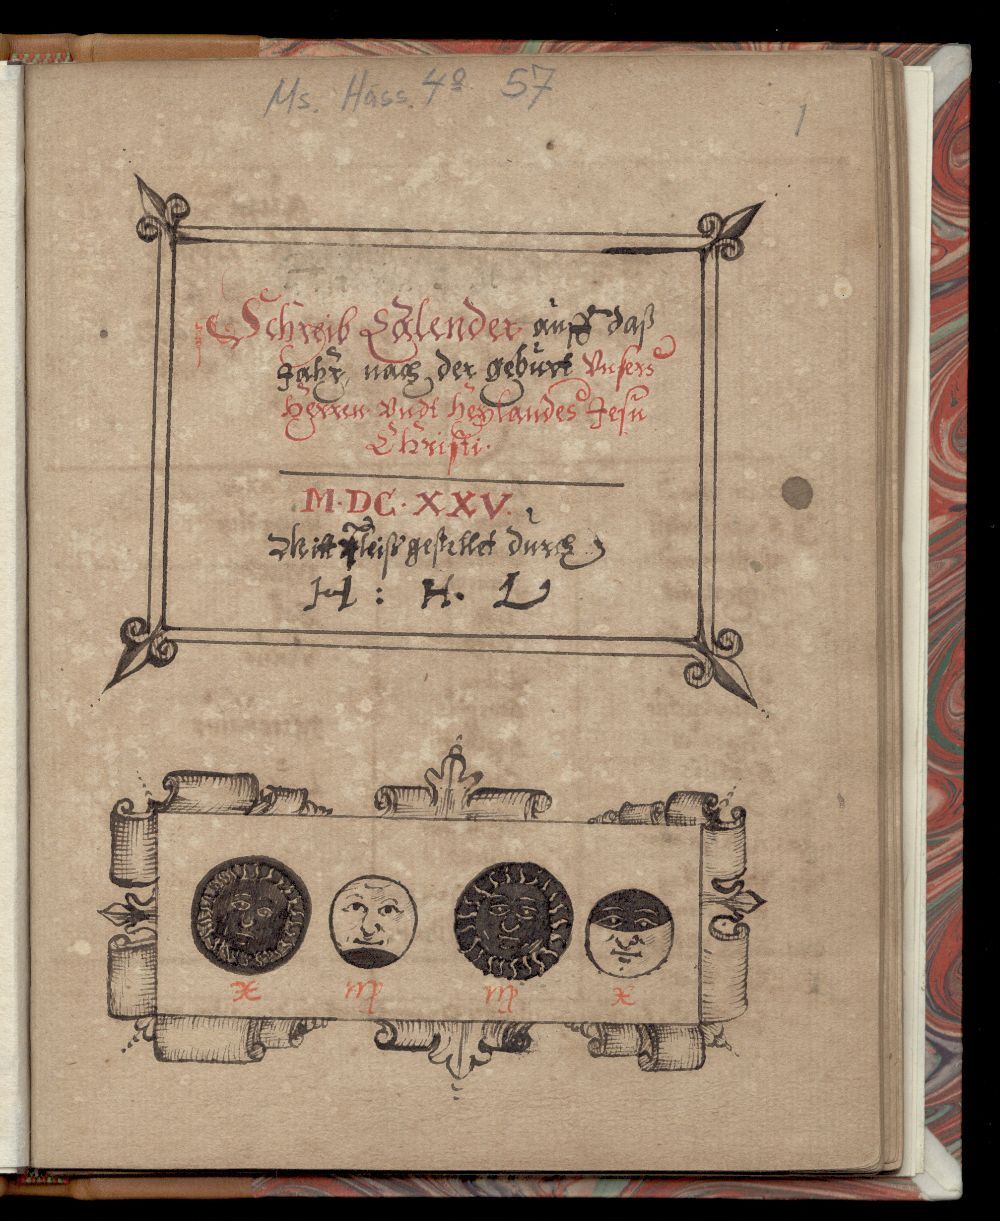 Ms. Hass. 4º 57
1
Schreib Calender auff daß
Jahr, nach der geburt Vnsers
Herren Vndt Heylandes Jesu
Christi.
M·DC·XXV.
Mitt fleiß gestellet durch
H : H. L
♓ ♍ ♍ ♓